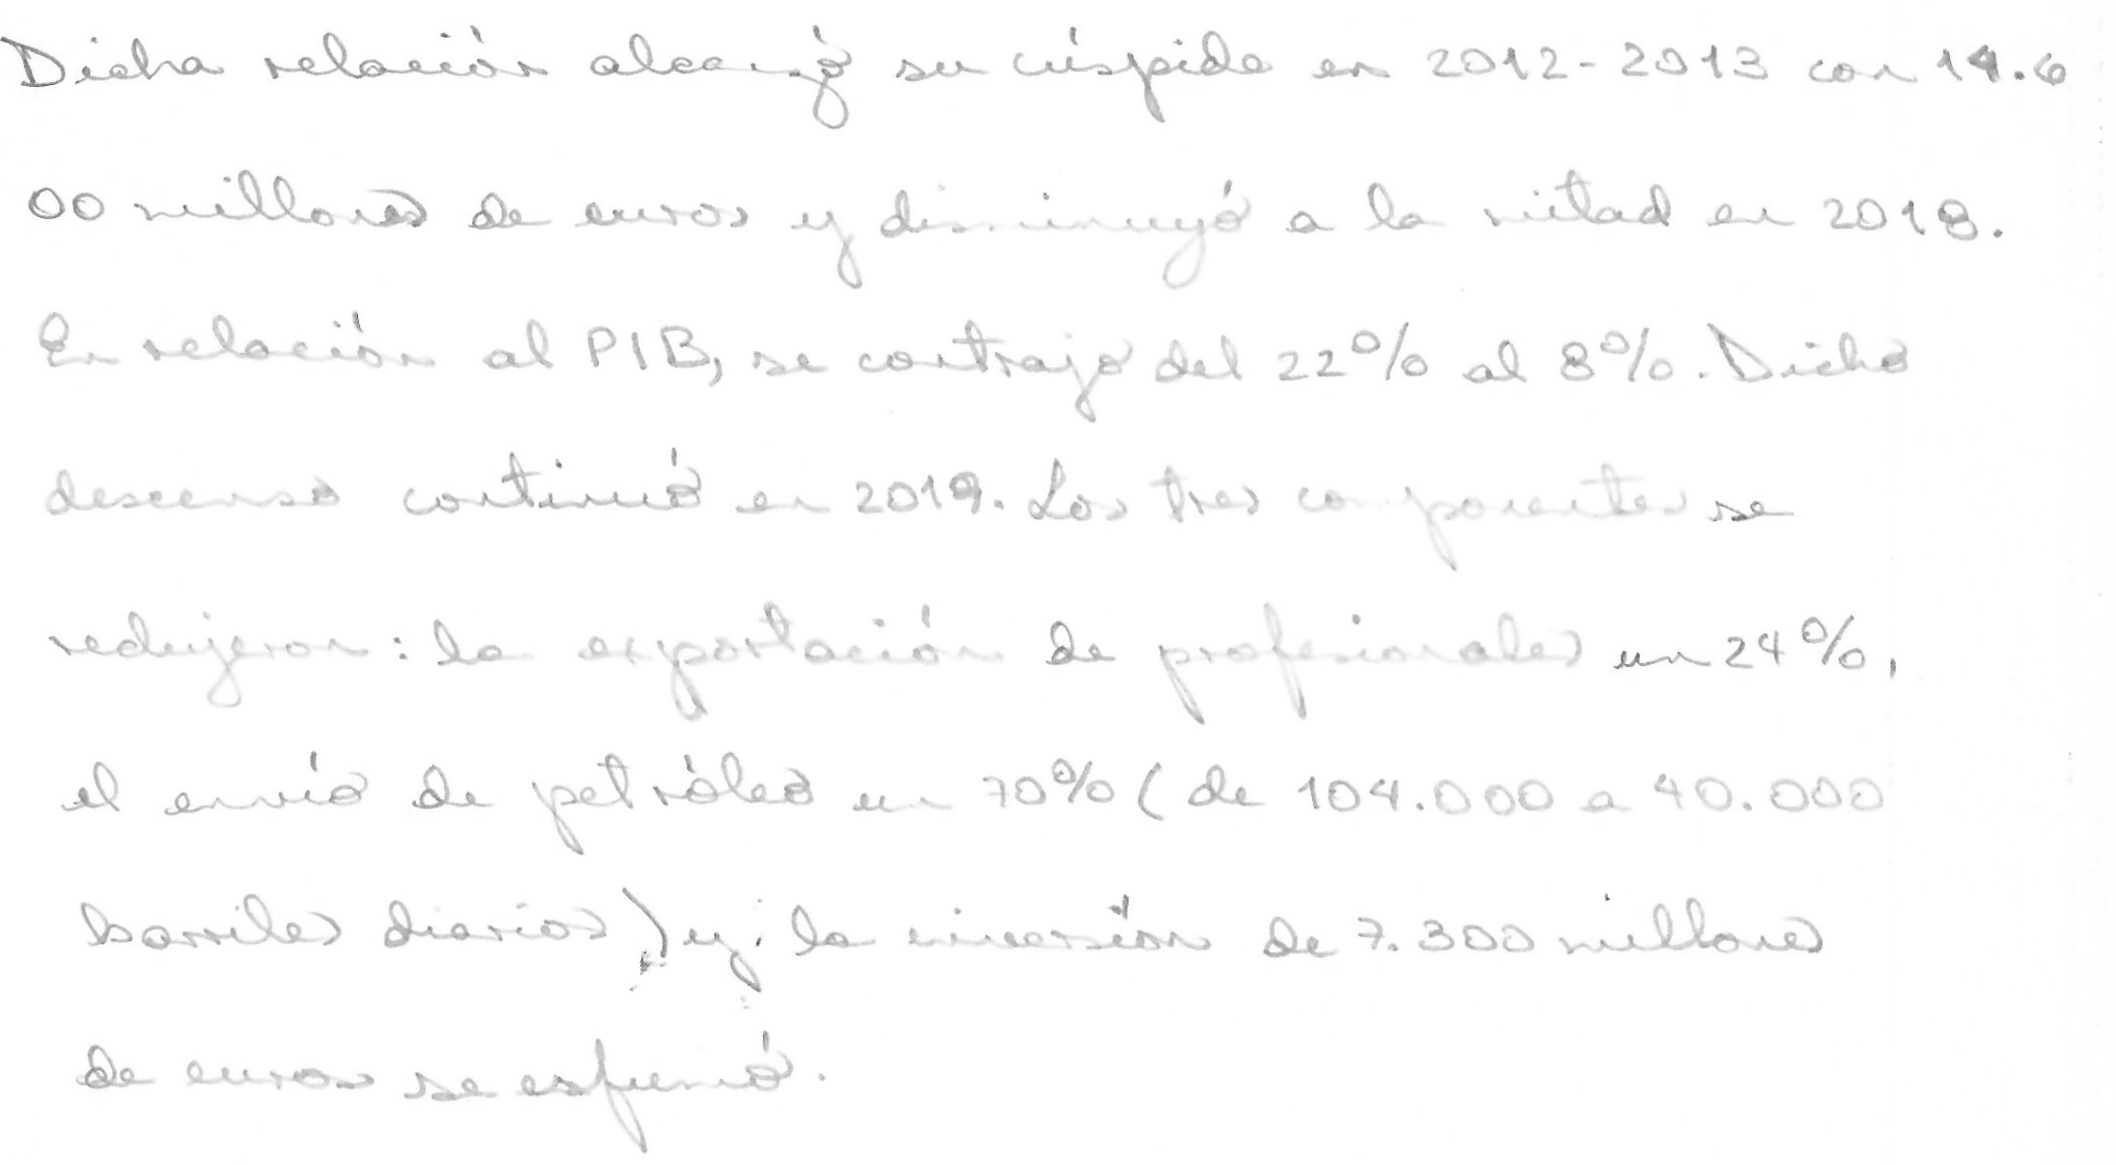 Dicha relación alcanzó su cúspide en 2012-2013 con 14.6
00 millones de euros y disminuyó a la mitad en 2018.
En relación al PIB, se contrajo del 22% al 8%. Dicho
descenso continuó en 2019. Los tres componentes se
redujeron: la exportación de profesionales un 24%,
el envío de petróleo un 70% (de 104.000 a 40.000
barriles diarios) y la inversión de 7.300 millones
de euros se esfumó.